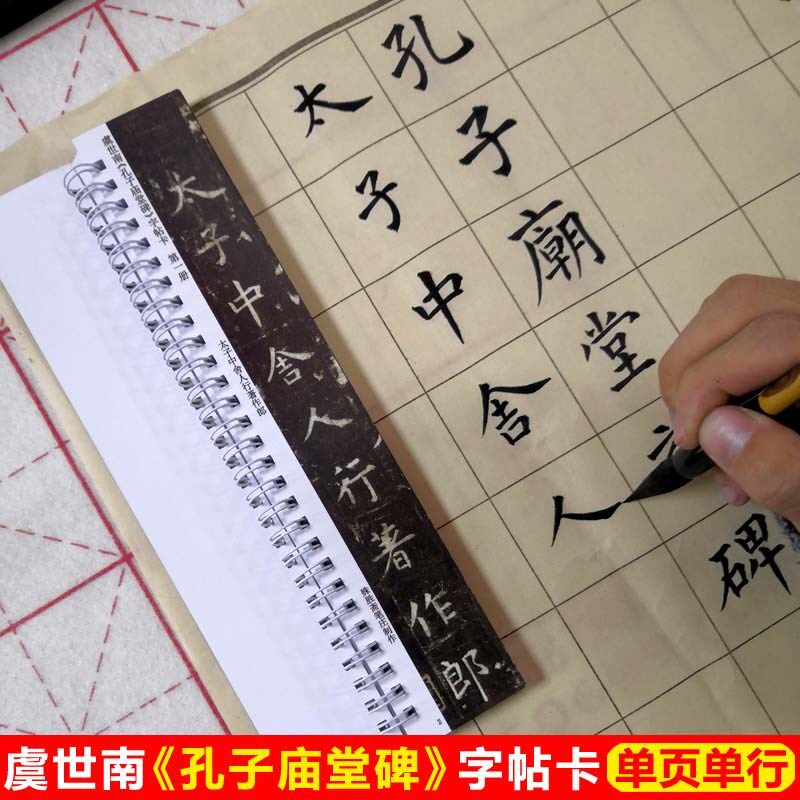 孔子廟堂碑
太子中舍人
太子中舍人行著作郎
虞世南《孔子庙堂碑》字帖卡 第一册
太子中舍人行著作郎
殊胜斋笔庄制作
2
虞世南《孔子庙堂碑》字帖卡 单页单行